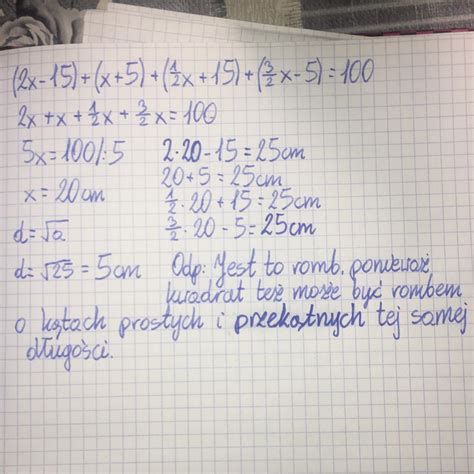 (2x-15)+(x+5)+(½x+15)+(3/2x-5)=100
2x+x+½x+3/2x=100
5x=100/:5
x=20cm
d=√a
d=√25=5cm
2·20-15=25cm
20+5=25cm
½·20+15=25cm
3/2·20-5=25cm
Odp: Jest to romb, ponieważ
kwadrat też może być rombem
o kątach prostych i przekątnych tej samej
długości.